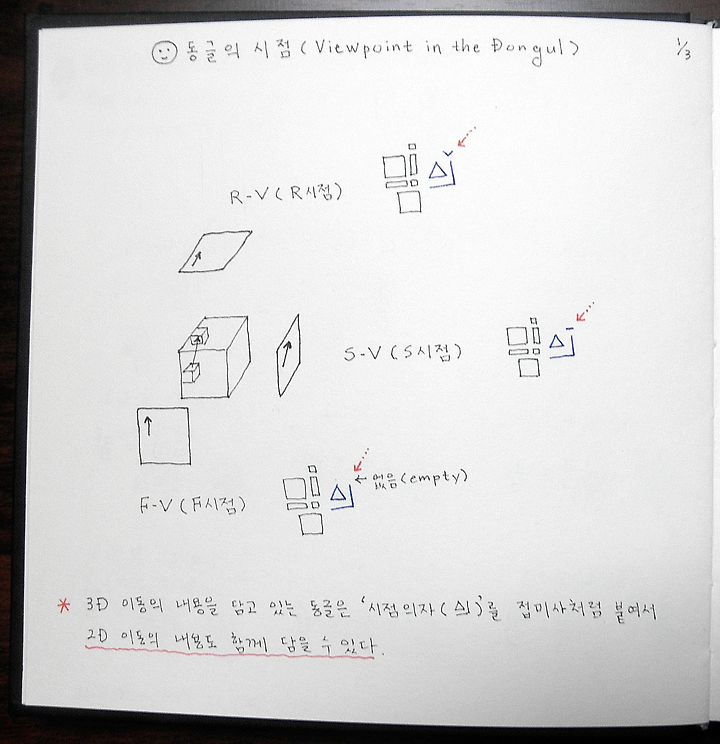 동글의 시점 (Viewpoint in the Dongul)
1/3
R-V (R시점)
S-V (S시점)
F-V (F시점)
← 없음 (empty)
* 3D 이동의 내용을 담고 있는 동글은 '시점의자( )'를 접미사처럼 붙여서
2D 이동의 내용도 함께 담을 수 있다.